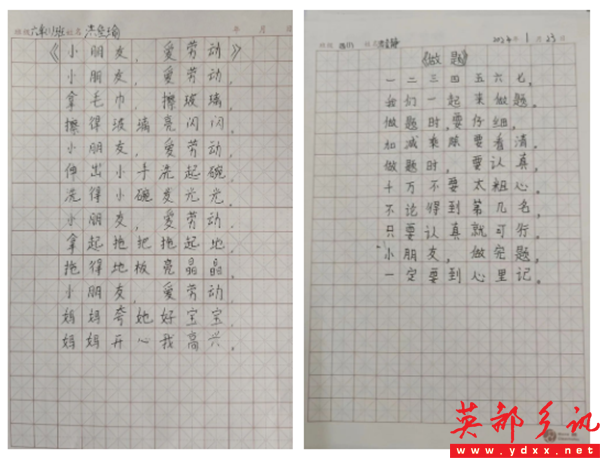 班级 六年1班 姓名 年 月 日
《小朋友,爱劳动》
小朋友,爱劳动,
拿毛巾,擦玻璃,
擦得玻璃亮闪闪。
小朋友,爱劳动,
伸出小手洗起碗,
洗得小碗发光光。
小朋友,爱劳动,
拿起拖把拖起地,
拖得地板亮晶晶。
小朋友,爱劳动,
妈妈夸她好宝宝,
妈妈开心我高兴。
班级 姓名 2024年1月23日
《做题》
一二三四五六七,
我们一起来做题。
做题时,要仔细,
加减乘除要看清,
做题时,要认真,
千万不要太粗心。
不论得到第几名,
只要认真就可行。
小朋友,做完题,
一定要到心里记。
英都乡讯
www.ydxx.net